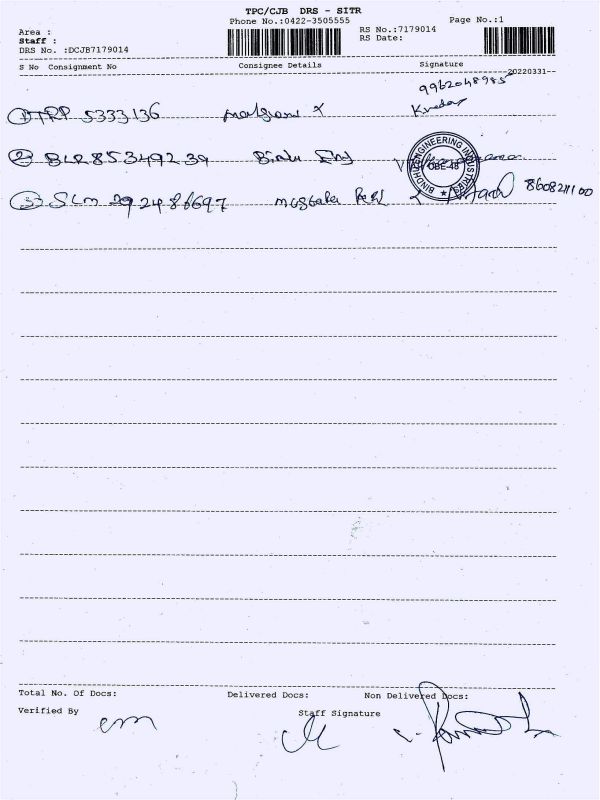 TPC/CJB DRS - SITR
Phone No.:0422-3505555
Page No.:1
Area :
Staff :
DRS No. :DCJB7179014
RS No.:7179014
RS Date:
S No Consignment No Consignee Details Signature
20220331
9962048985
① TRP 5333136
② BLR 85349239 Bindu Eng
BINDHU ENGINEERING INDUSTRIES
CBE-48
③ SLM 292486697
8608211100
Total No. Of Docs: Delivered Docs: Non Delivered Docs:
Verified By Staff Signature